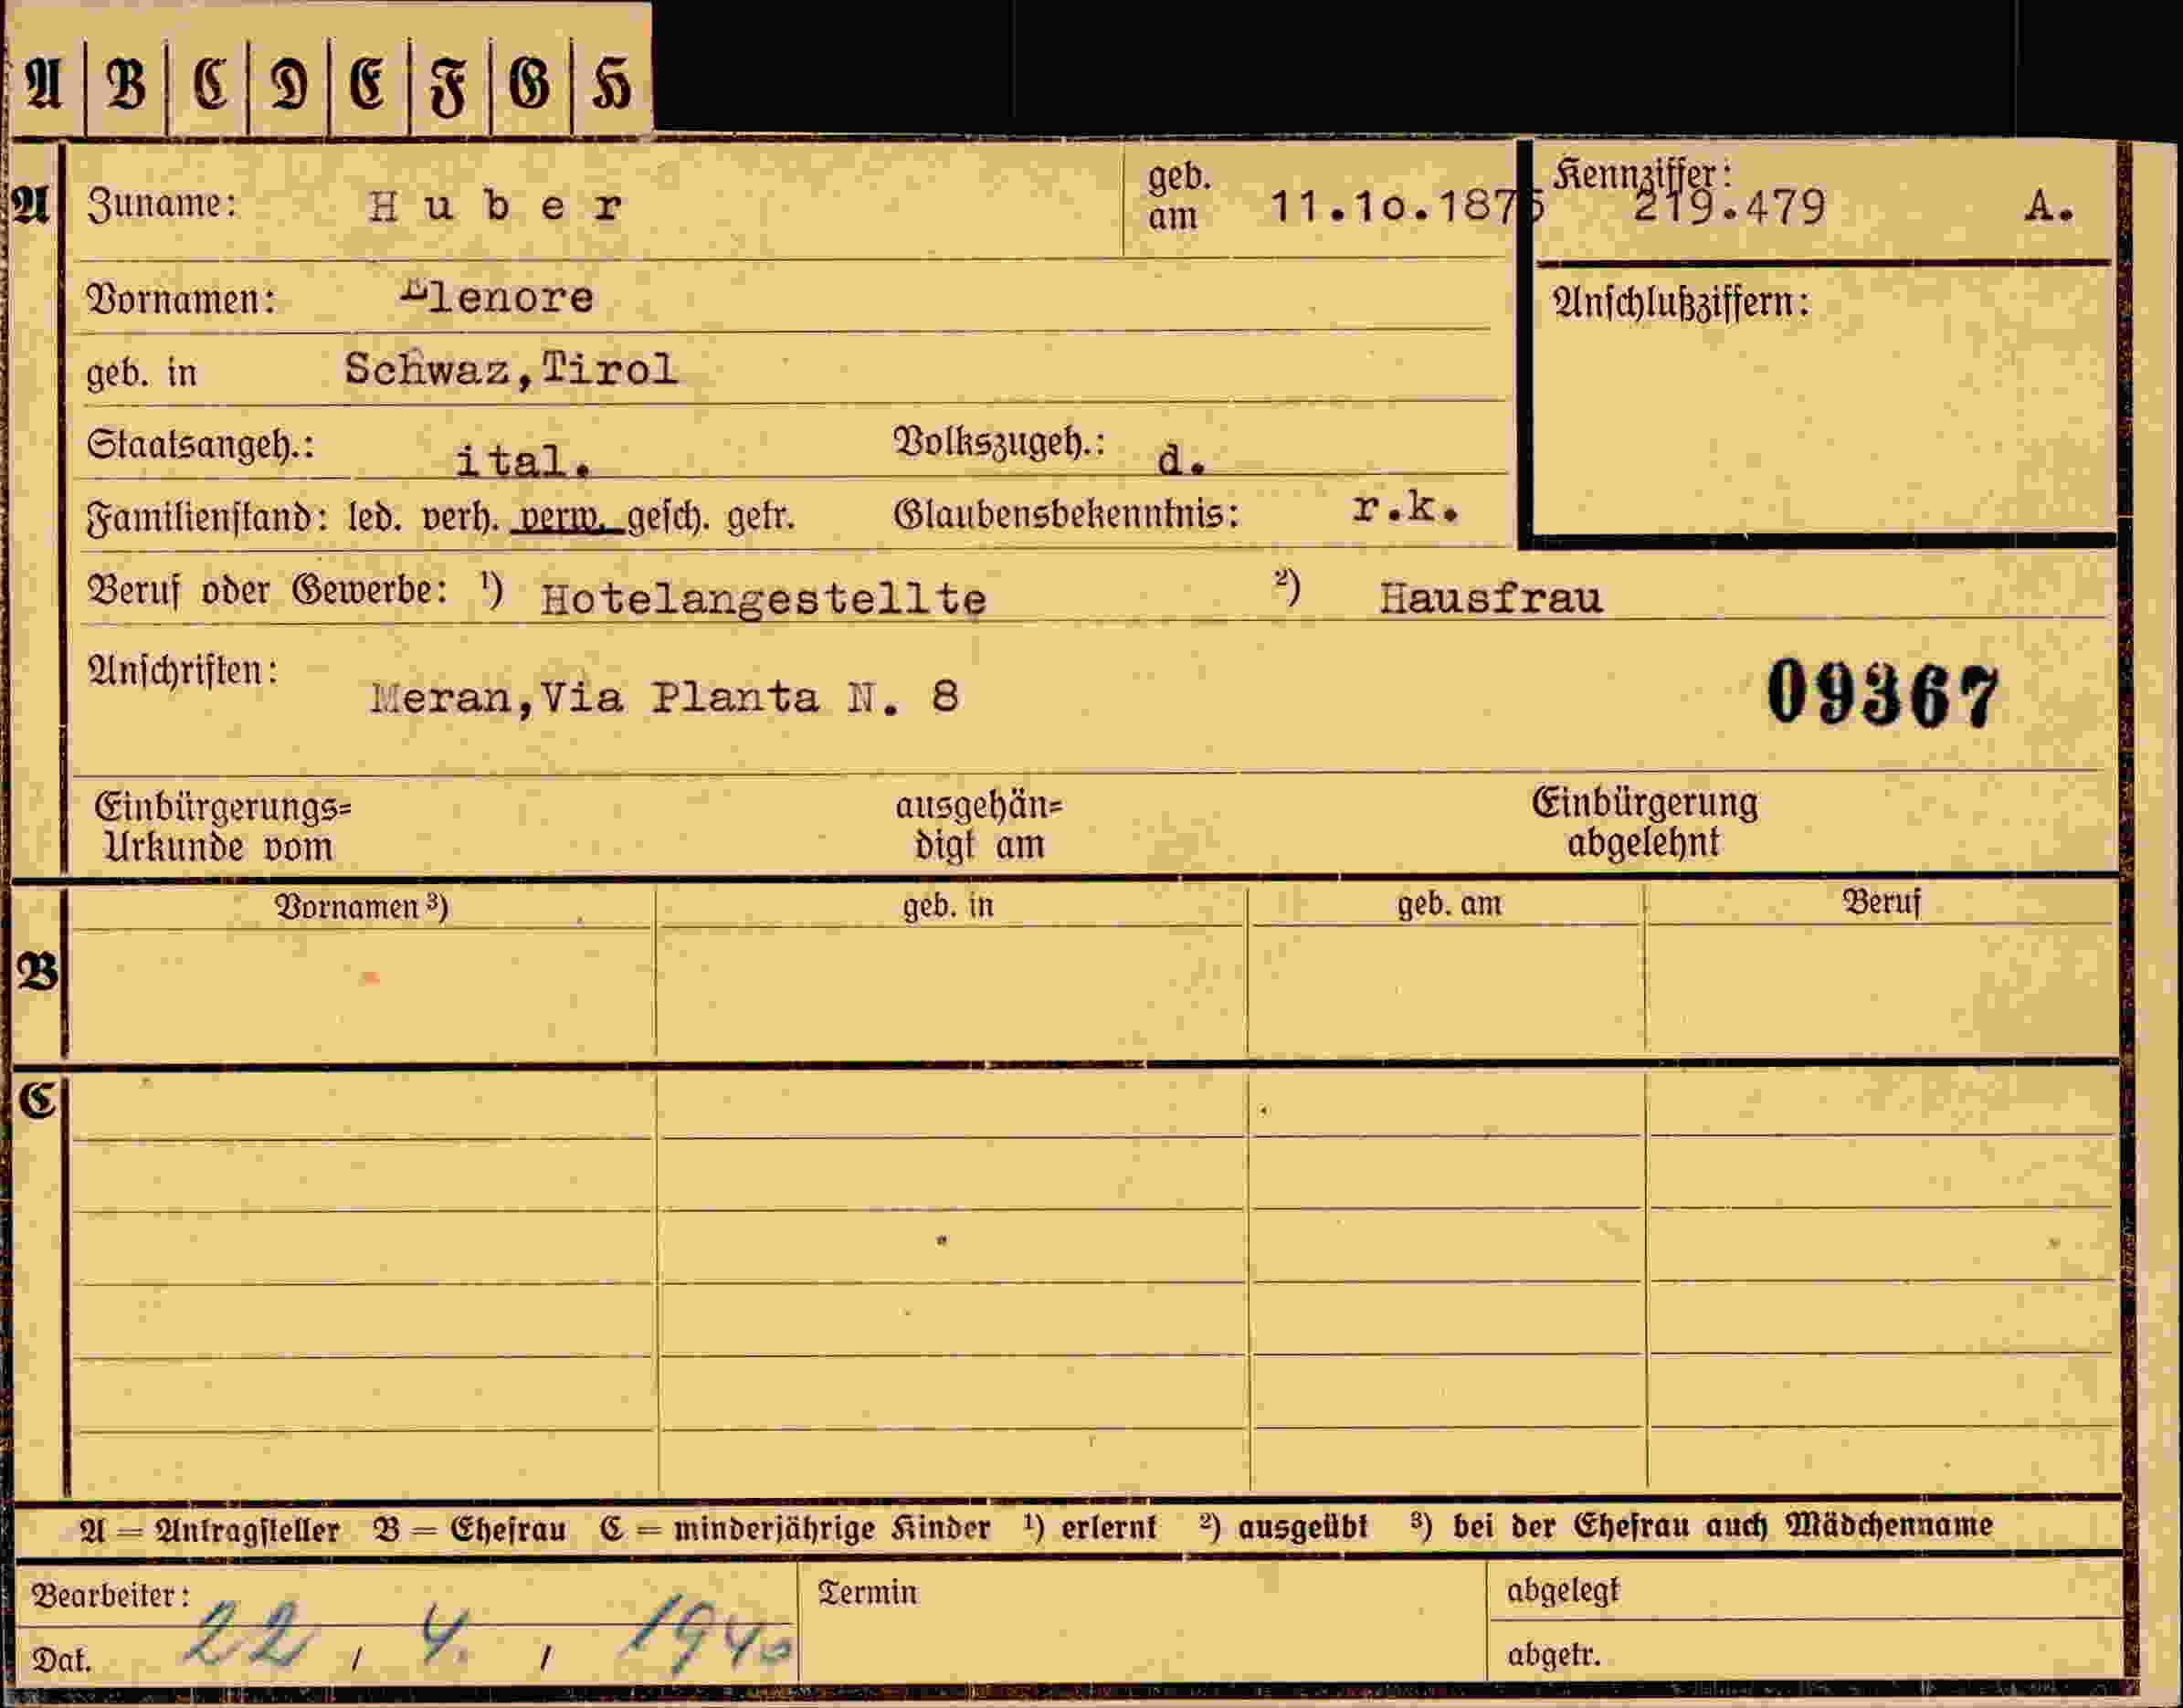 A B C D E F G H
A Zuname: Huber geb. am 11.10.1875 Kennziffer: 219.479 A.
Vornamen: Elenore Anschlußziffern:
geb. in Schwaz,Tirol
Staatsangeh.: ital. Volkszugeh.: d.
Familienstand: led. verh. verw. gesch. getr. Glaubensbekenntnis: r.k.
Beruf oder Gewerbe: ¹) Hotelangestellte ²) Hausfrau
Anschriften: Meran,Via Planta N. 8 09367
Einbürgerungs= ausgehän= Einbürgerung
Urkunde vom digt am abgelehnt
Vornamen ³) geb. in geb. am Beruf
B
C
A = Antragsteller B = Ehefrau C = minderjährige Kinder ¹) erlernt ²) ausgeübt ³) bei der Ehefrau auch Mädchenname
Bearbeiter: Termin abgelegt
Dat. 22 / 4. / 1940 abgetr.